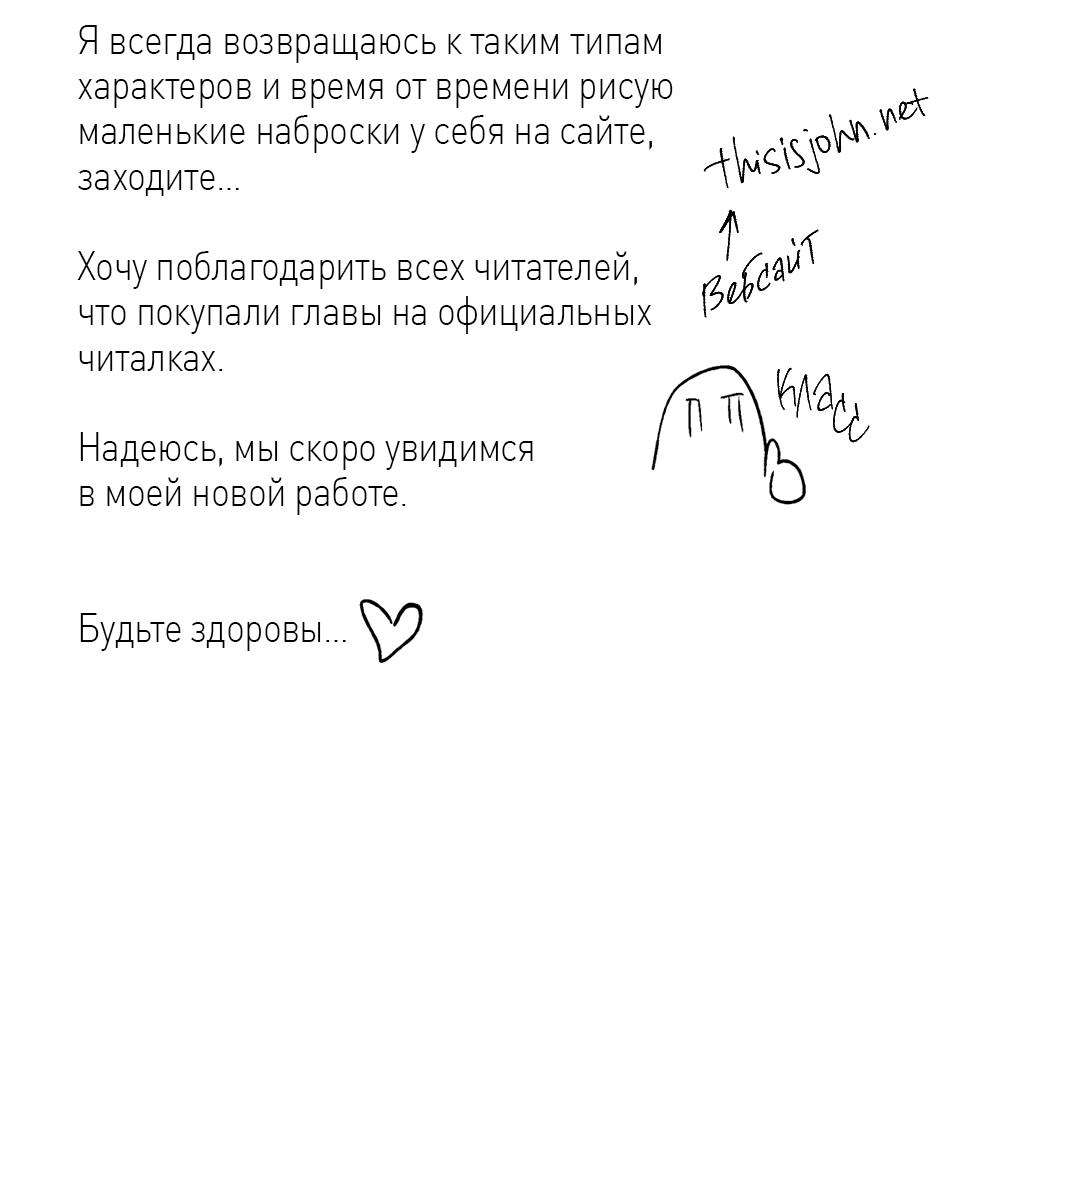 Я всегда возвращаюсь к таким типам
характеров и время от времени рисую
маленькие наброски у себя на сайте,
заходите...
thisisjohn.net
Вебсайт
Хочу поблагодарить всех читателей,
что покупали главы на официальных
читалках.
Класс
Надеюсь, мы скоро увидимся
в моей новой работе.
Будьте здоровы...